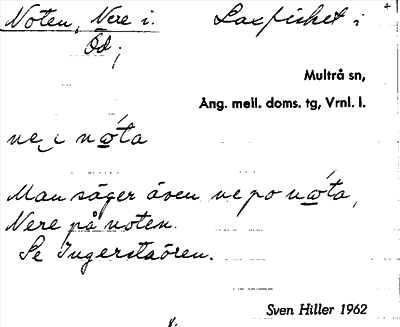 Noten, Nere i. Laxfisket i
Öd;
Multrå sn,
Ång. mell. doms. tg, Vrnl. l.
ne i nώ̲ta
Man säger även ne po nώ̲ta,
Nere på noten.
Se Ingerstaören.
Sven Hiller 1962